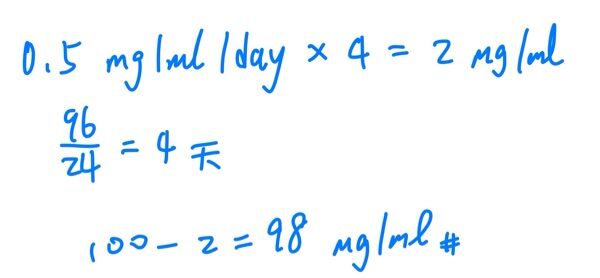 0.5 mg/ml/day × 4 = 2 mg/ml
96/24 = 4 天
100 - 2 = 98 mg/ml #